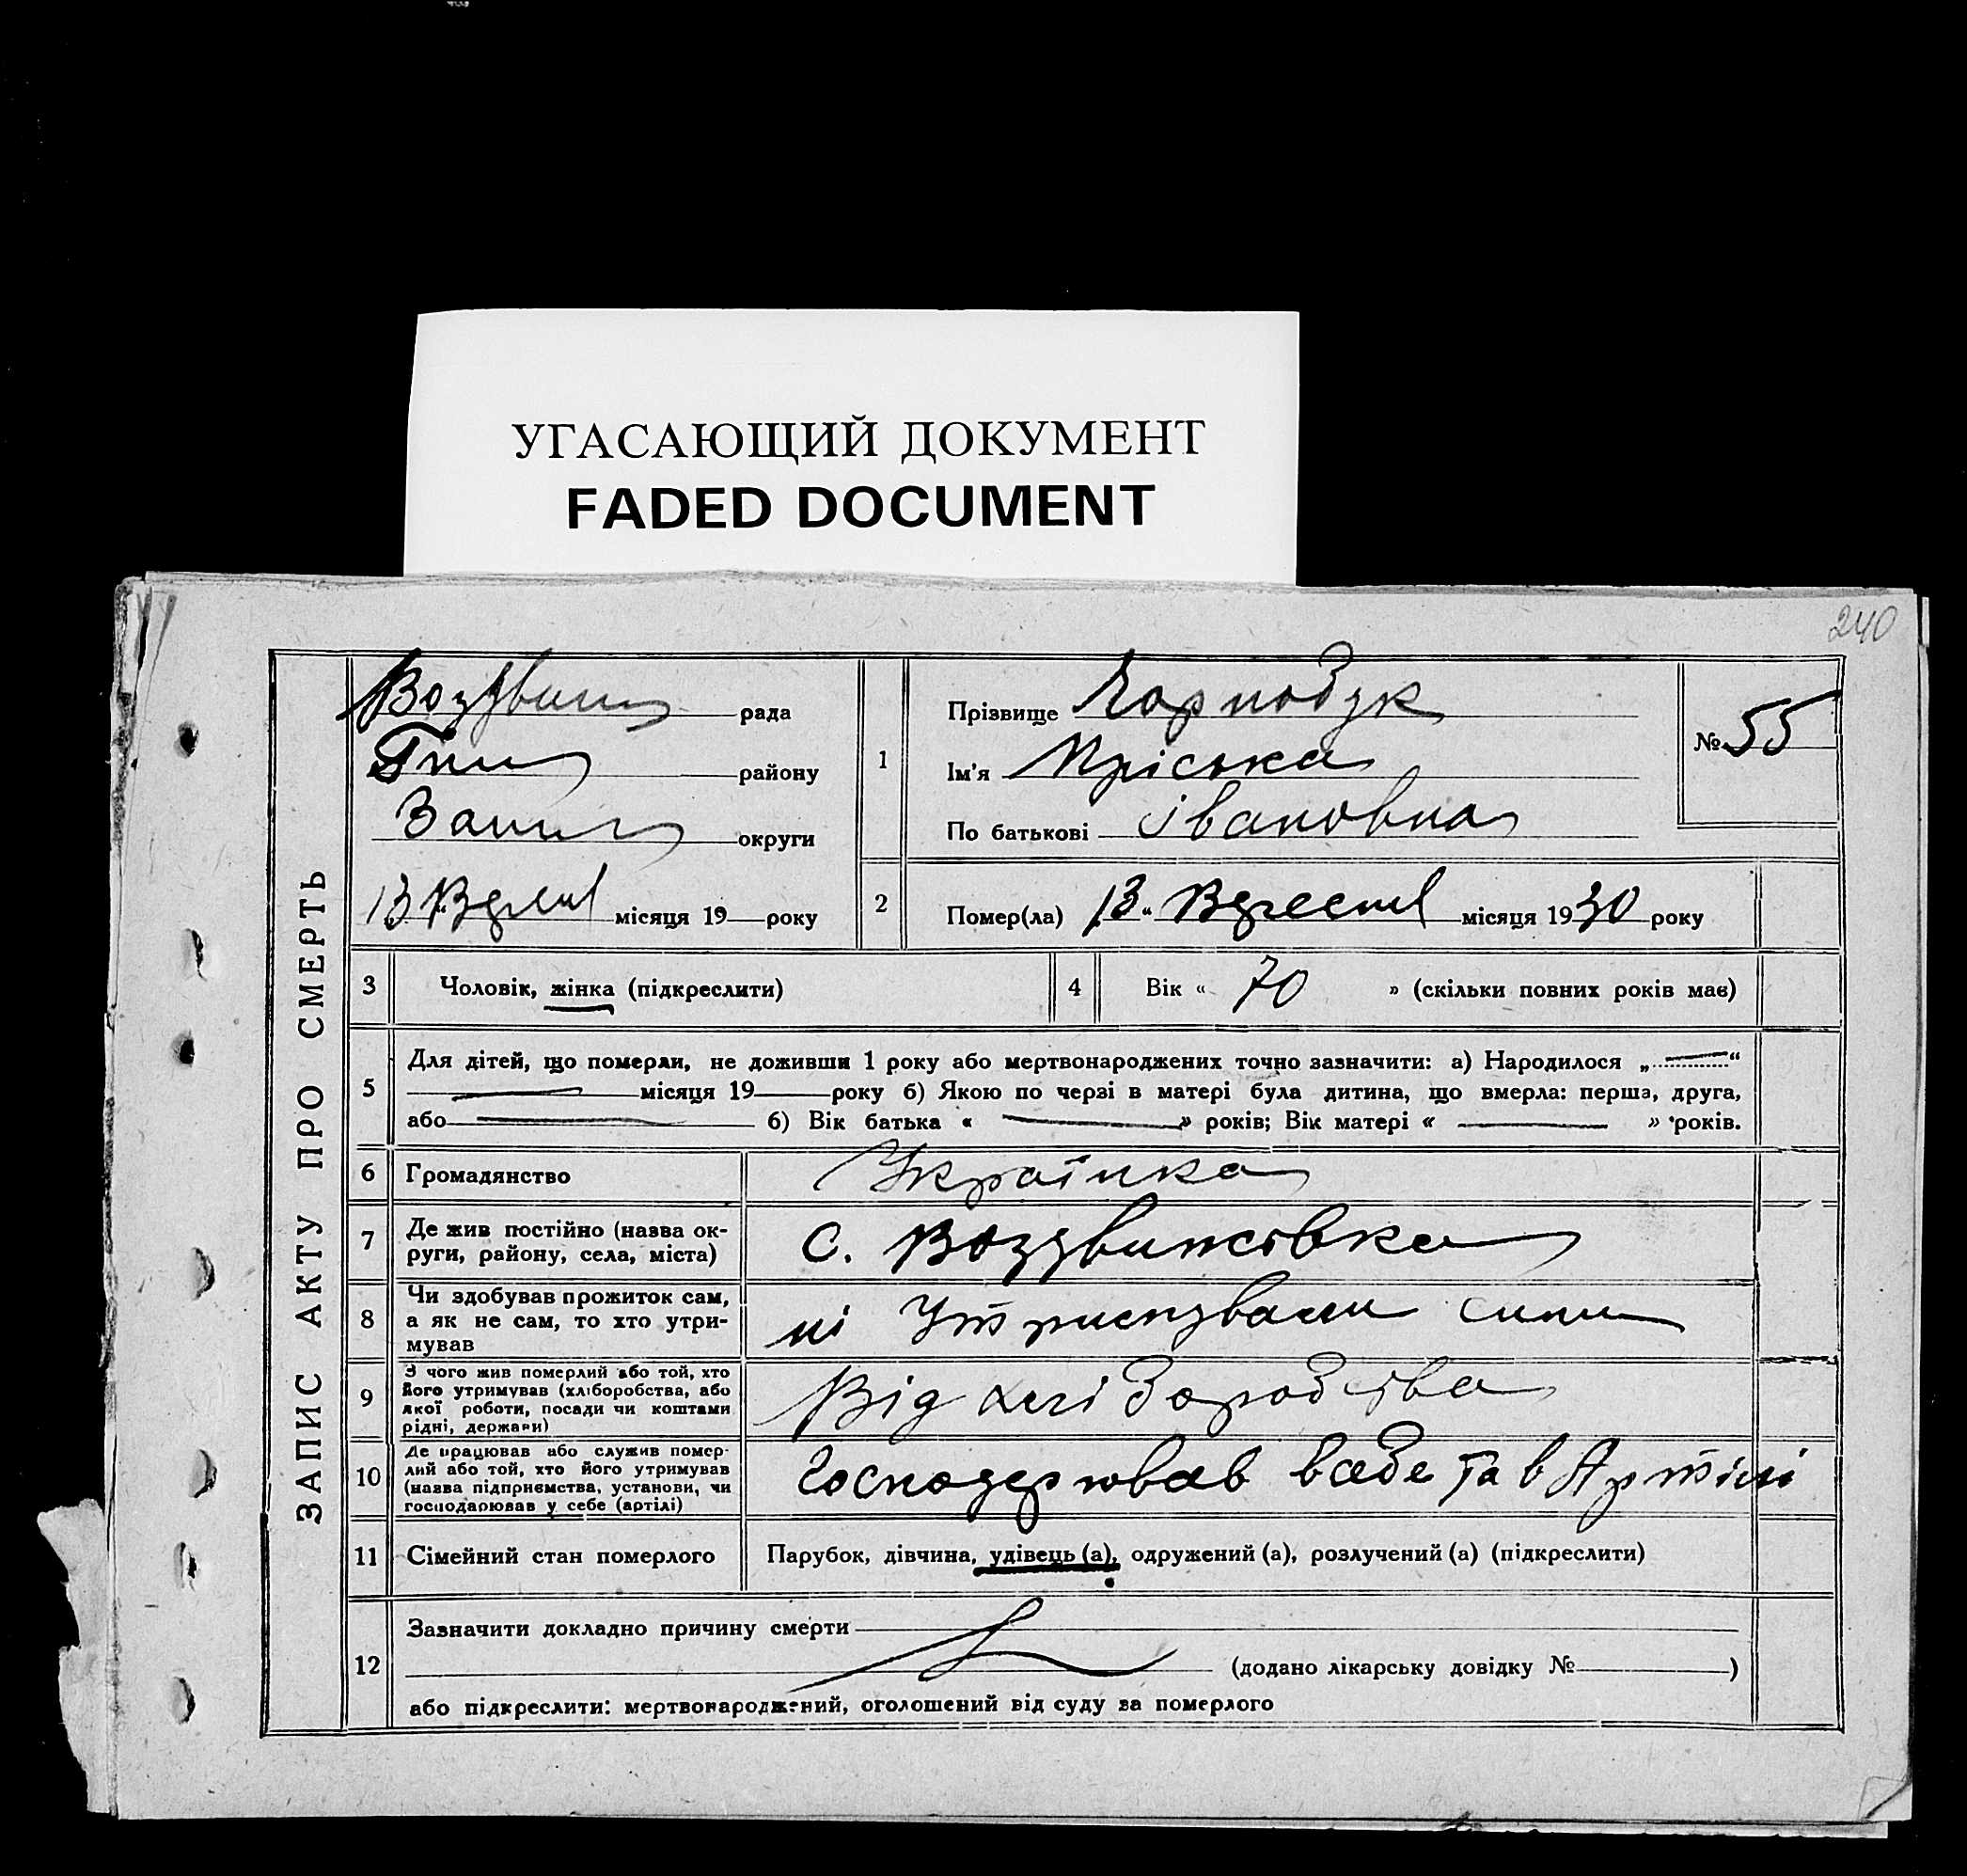 УГАСАЮЩИЙ ДОКУМЕНТ
FADED DOCUMENT
240
ЗАПИС АКТУ ПРО СМЕРТЬ
рада
району
округи
13 місяця 19 року
1
Прізвище
Ім'я Пріська
По батькові івановна
№ 55
2
Помер(ла) 13 “ Вересня місяця 1930 року
3 Чоловік, жінка (підкреслити)
4 Вік « 70 » (скільки повних років має)
5
Для дітей, що померли, не доживши 1 року або мертвонароджених точно зазначити: а) Народилося „ “
місяця 19 року б) Якою по черзі в матері була дитина, що вмерла: перша, друга,
або б) Вік батька « » років; Вік матері « » років.
6 Громадянство Українка
7 Де жив постійно (назва ок-
руги, району, села, міста)
с. Воздвижовка
8 Чи здобував прожиток сам,
а як не сам, то хто утри-
мував
ні Утримували сини
9 З чого жив померлий або той, хто
його утримував (хліборобства, або
якої роботи, посади чи коштами
рідні, держави)
Від хліборобства
10 Де працював або служив помер-
лий або той, хто його утримував
(назва підприємства, установи, чи
господарював у себе (артілі)
в себе та в Артілі
11 Сімейний стан померлого Парубок, дівчина, удівець (а), одружений (а), розлучений (а) (підкреслити)
12
Зазначити докладно причину смерти
(додано лікарську довідку № )
або підкреслити: мертвонароджений, оголошений від суду за померлого